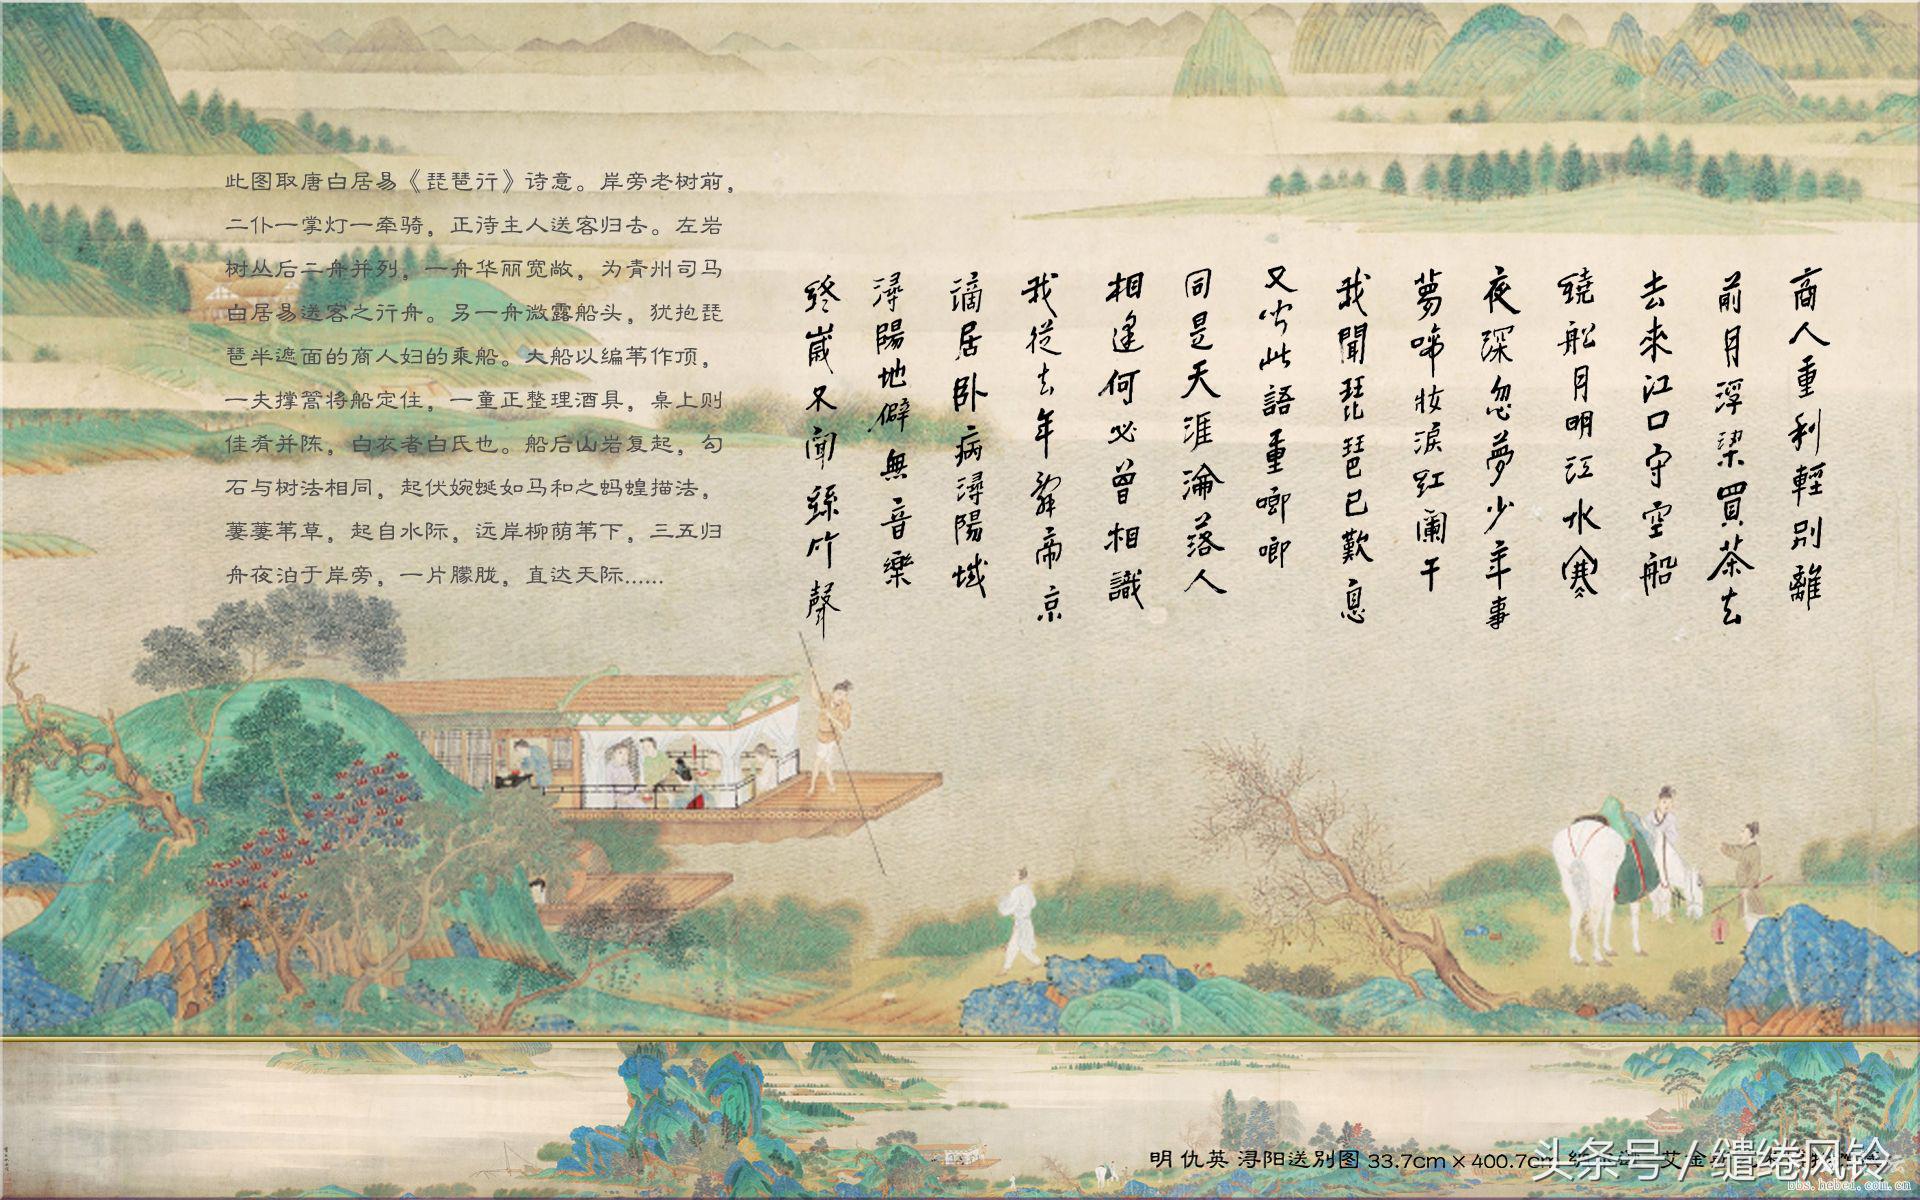 商人重利輕别離
前月浮梁買茶去
去來江口守空船
繞船月明江水寒
夜深忽夢少年事
夢啼妝淚紅闌干
我聞琵琶已歎息
又聞此語重唧唧
同是天涯淪落人
相逢何必曾相識
我從去年辭帝京
謫居卧病潯陽城
潯陽地僻無音樂
終歲不聞絲竹聲
此图取唐白居易《琵琶行》诗意。岸旁老树前，
二仆一掌灯一牵骑，正待主人送客归去。左岩
树丛后二舟并列，一舟华丽宽敞，为青州司马
白居易送客之行舟。另一舟微露船头，犹抱琵
琶半遮面的商人妇的乘船。大船以编苇作顶，
一夫撑篙将船定住，一童正整理酒具，桌上则
佳肴并陈，白衣者白氏也。船后山岩复起，勾
石与树法相同，起伏婉蜒如马和之蚂蝗描法，
萋萋苇草，起自水际，远岸柳荫苇下，三五归
舟夜泊于岸旁，一片朦胧，直达天际......
明 仇英 浔阳送别图 33.7cm × 400.7cm
头条号 / 缱绻风铃
bbs.hebei.com.cn